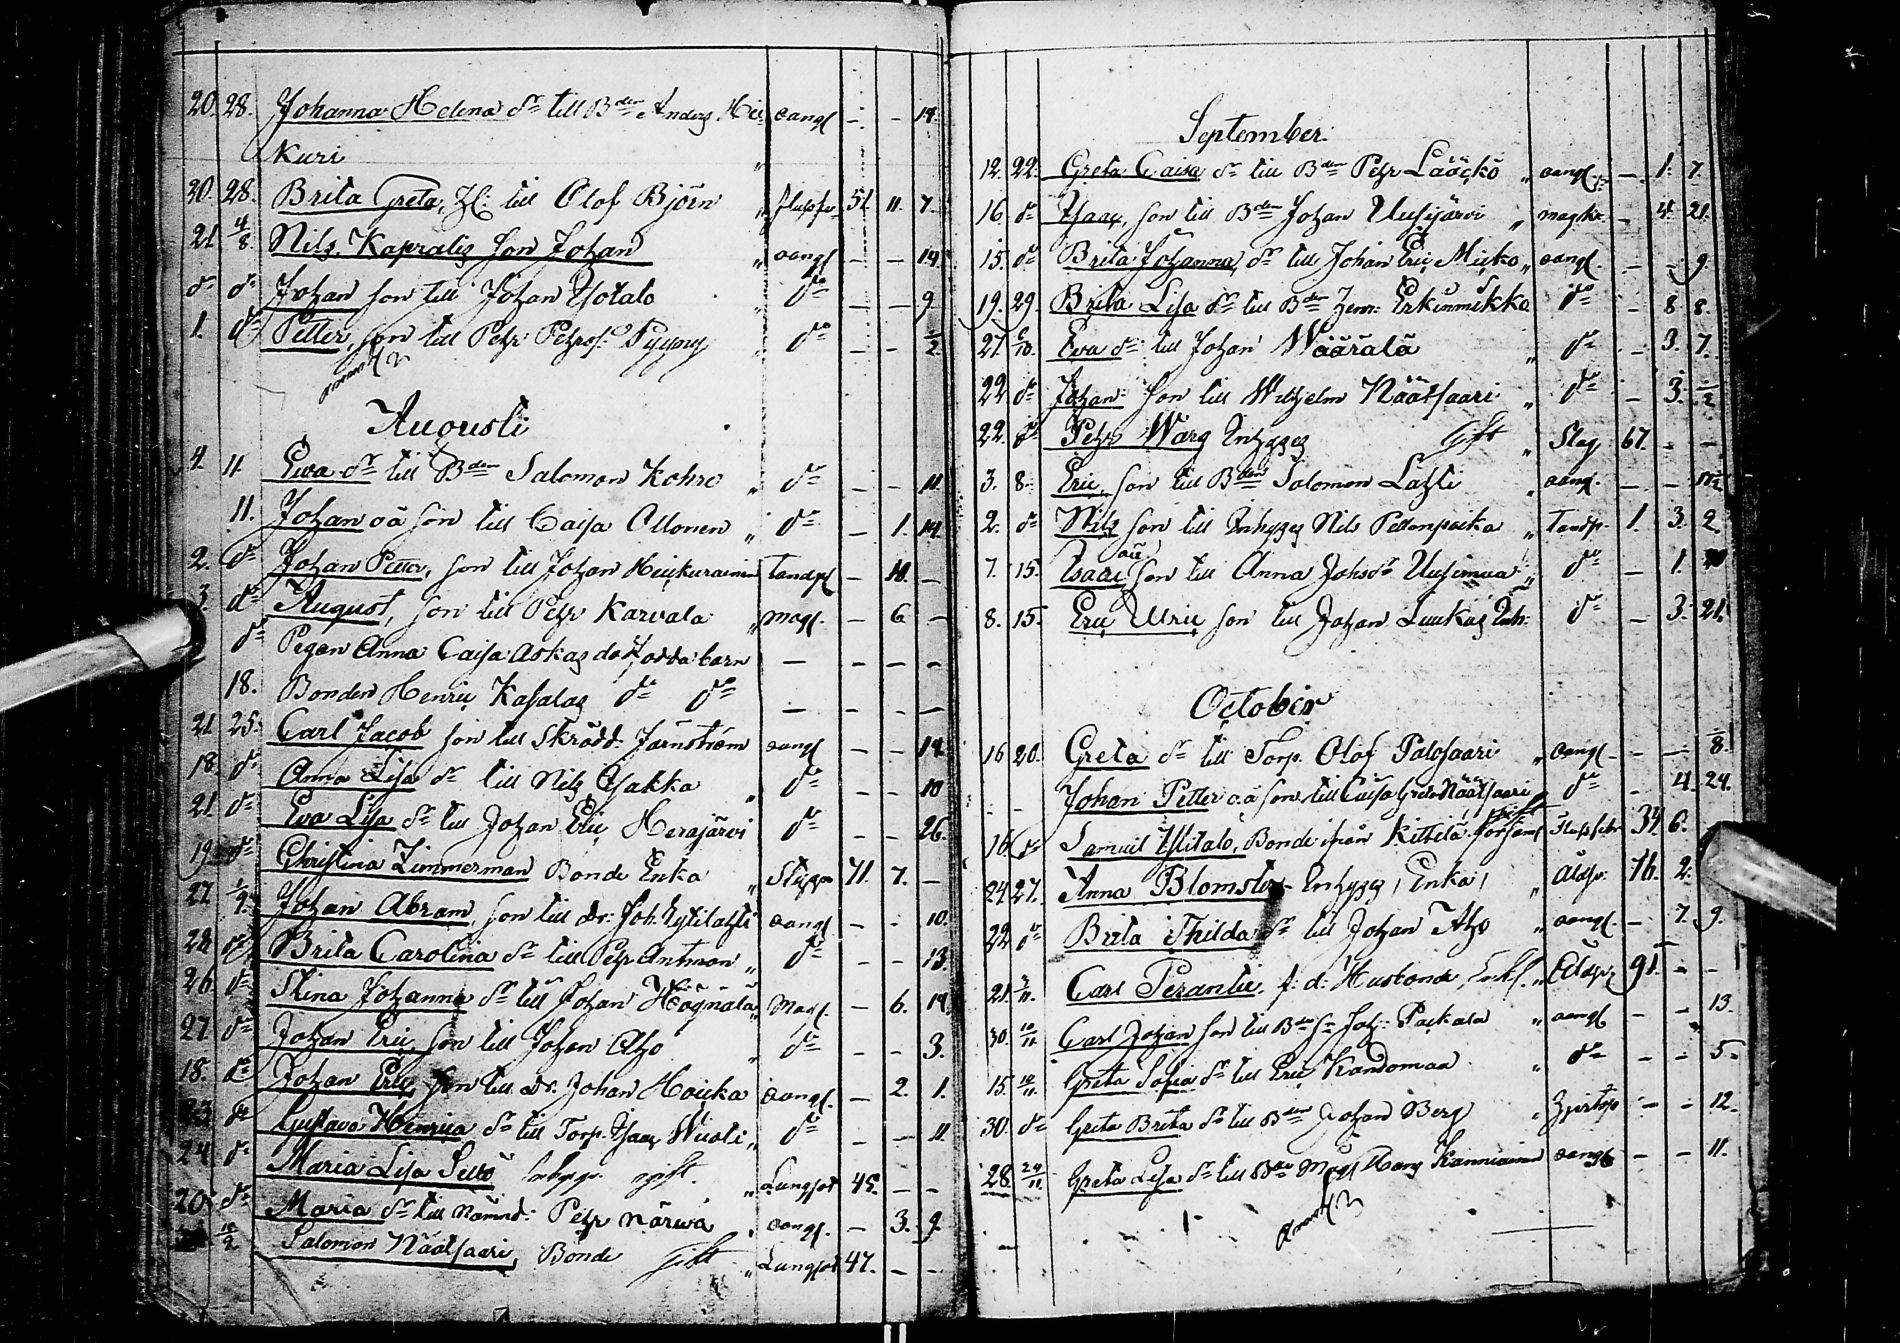 20. 28. Johanna Helena dr till Bden Anders Hei- oangf – – 14.
kuri
30. 28. Brita Greta, till Olof Björn " 51. 11. 7.
21 4/8. Nils Kapralis son Johan " oangf – – 14.
do do Johan son till Johan Ylitalo " do – – 9
1. do Petter, son till Pehr Pehrs. Pyyny " do – – 1/2
Augusti
4. 11. Ewa dr till Bden Salomon Kohre " do – – 11.
11. Johan oä son till Caisa Ollonen " do – 1. 14.
2. do Johan Petter, son till Johan Heickurainen Tandsl – 10. –
3. do August, son till Pehr Karvala " magf. – 6 –
do Pigan Anna Caisa Askas dödfödda barn – – – –
18. Bonden Henric Kasalas do do – – – –
21 25. Carl Jacob son till Skrädd. Järnström oangf – – 14.
18. do Anna Lisa dr till Nils Ojakka " do – – 10
21 do Eva Lisa dr till Johan Eric Herajärvi do – – 26.
19 do Christina Zimmerman Bonde Enka " 71. 7. –
27. 1/9. Johan Abram, son till dr: Joh. oangf – – 10.
28 do Brita Carolina dr till Pehr Antman " do – – 13.
26 do Stina Johanna dr till Johan Högnälä " Magf. – 6. 14.
27. do Johan Eric son till Johan Aho " do – – 3.
18. do Johan Eric son till dr. Johan Houka oangf. – 2. 1.
23 do Gustava Henrica dr till Torp. Isaac Wuoti " do – – 11.
24 do Maria Lisa gift. " Lungsot 45. – –
20. do Maria dr till Nämnd: Pehr Närwä " oangf. – 3. 9
Salomon Näätsaari, Bonde gift " Lungsot 47. – –
September.
12. 22. Greta Caisa dr till Bden Pehr Lääckö " oangf. – 1. 7.
16. do Isaac, son till Bden Johan Uusijärvi " – 4. 21.
15. do Brita Johanna dr till Johan Eric Micko " oangf. – – 9.
19. 29. Brita Lisa dr till Bden Henr. Erkinmikko do – 8 8.
27. 6/10. Ewa dr till Johan Wäärälä " do – 3. 7.
22 do Johan son till Wilhelm Näätsaari " do – 3. 1/2
22. do Pehr Warg Inhyses gift " Slag 67. – –
3. 8. Eric, son till Bden Salomon Lahti " oangf. – –
2. do Nils son till Inhyses Nils Pellonpaika " Tandsp. 1. 3. 2
7. 15. Isaac oä son till Anna Johsdr Uusimaa " do – 1.
8. 15. Eric Ulric son till Johan Luukas Inh: do – 3. 21.
October
16 20. Greta dr till Torp. Olof Palosaari " oangf. – – 1/8.
– – Johan Petter o.ä son till Caisa Greta Näätsaari do – 4. 24.
16. do Samuel Ylitalo, Bonde ifrån Kittilä 34 6.
24 27. Anna Blomster Inhyses (Enka) " Åldr: 76. 2.
22 do Brita Thilda dr till Johan Aho " oangf. – 7. 9.
21. 3/11. Carl Perantie, f: d: Husbonde, " Åldr. 91. – –
30. 10/11 Carl Johan son till Bden Joh. Paskala " oangf – – 13.
15. 10/11. Greta Sofia dr till Eric Kandomaa " do – – 5.
30. do Greta Brita dr till Bden Johan Berg " – – 12.
28. 24/11 Greta Lisa dr till Bden Hans Kanniainen oangf – – 11.